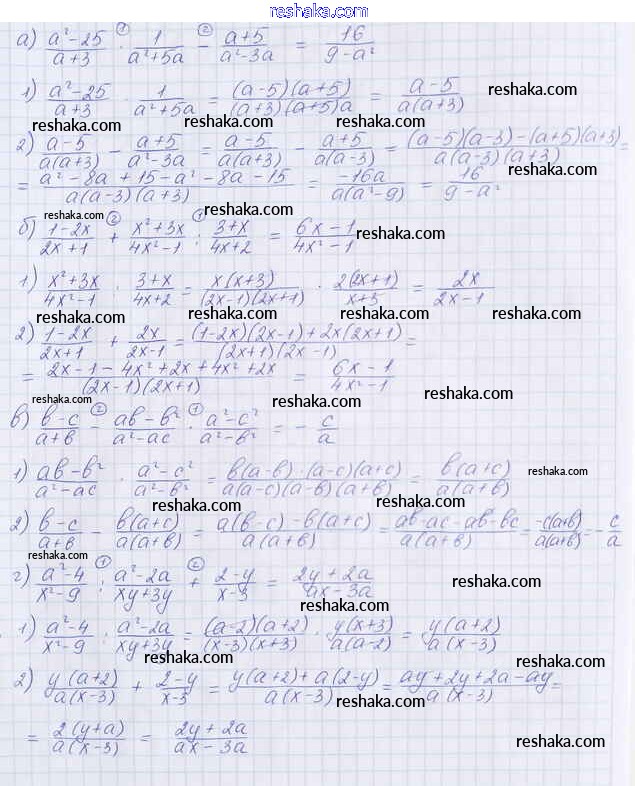 reshaka.com
а) (a²-25)/(a+3) · 1/(a²+5a) - (a+5)/(a²-3a) = 16/(9-a²)
1) (a²-25)/(a+3) · 1/(a²+5a) = ((a-5)(a+5))/((a+3)(a+5)a) = (a-5)/(a(a+3)) reshaka.com
reshaka.com reshaka.com
2) (a-5)/(a(a+3)) - (a+5)/(a²-3a) = (a-5)/(a(a+3)) - (a+5)/(a(a-3)) = ((a-5)(a-3)-(a+5)(a+3))/(a(a-3)(a+3)) =
= (a²-8a+15-a²-8a-15)/(a(a-3)(a+3)) = (-16a)/(a(a²-9)) = 16/(9-a²)
reshaka.com reshaka.com
б) (1-2x)/(2x+1) + (x²+3x)/(4x²-1) : (3+x)/(4x+2) = (6x-1)/(4x²-1) reshaka.com
1) (x²+3x)/(4x²-1) : (3+x)/(4x+2) = (x(x+3))/((2x-1)(2x+1)) · (2(2x+1))/(x+3) = 2x/(2x-1)
reshaka.com reshaka.com reshaka.com
2) (1-2x)/(2x+1) + 2x/(2x-1) = ((1-2x)(2x-1)+2x(2x+1))/((2x+1)(2x-1)) =
= (2x-1-4x²+2x+4x²+2x)/((2x-1)(2x+1)) = (6x-1)/(4x²-1) reshaka.com
reshaka.com
в) (в-c)/(a+в) - (aв-в²)/(a²-ac) · (a²-c²)/(a²-в²) = -c/a
1) (aв-в²)/(a²-ac) · (a²-c²)/(a²-в²) = (в(a-в)·(a-c)(a+c))/(a(a-c)(a-в)(a+в)) = (в(a+c))/(a(a+в)) reshaka.com
reshaka.com reshaka.com
2) (в-c)/(a+в) - (в(a+c))/(a(a+в)) = (a(в-c)-в(a+c))/(a(a+в)) = (aв-ac-aв-вc)/(a(a+в)) = (-c(a+в))/(a(a+в)) = -c/a
reshaka.com
г) (a²-4)/(x²-9) : (a²-2a)/(xy+3y) + (2-y)/(x-3) = (2y+2a)/(ax-3a) reshaka.com
1) (a²-4)/(x²-9) : (a²-2a)/(xy+3y) = ((a-2)(a+2))/((x-3)(x+3)) · (y(x+3))/(a(a-2)) = (y(a+2))/(a(x-3))
reshaka.com reshaka.com
2) (y(a+2))/(a(x-3)) + (2-y)/(x-3) = (y(a+2)+a(2-y))/(a(x-3)) = (ay+2y+2a-ay)/(a(x-3)) =
reshaka.com
= (2(y+a))/(a(x-3)) = (2y+2a)/(ax-3a) reshaka.com